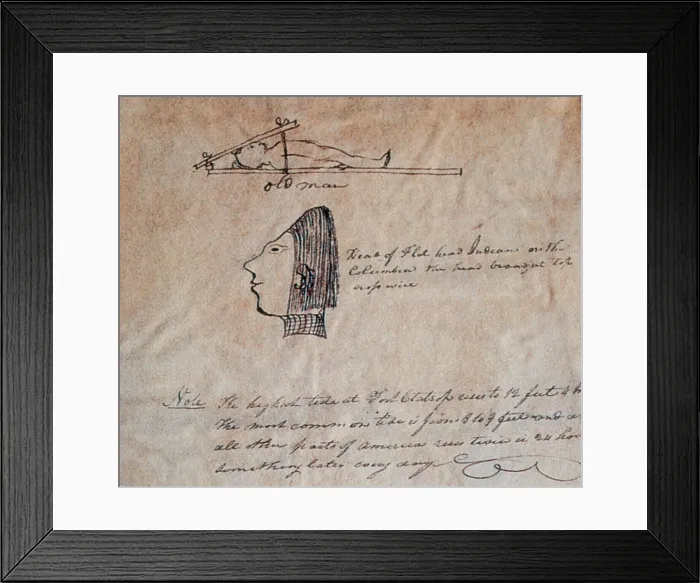 old man
Heads of Flat head Indians on the
Columbia the head brought to a
crosswise
Note The highest tide at Fort Clatsop rises to 12 feet 4
The most common tide is from 8 to 9 feet and
all other parts of America runs twice in 24 ho
something later every day